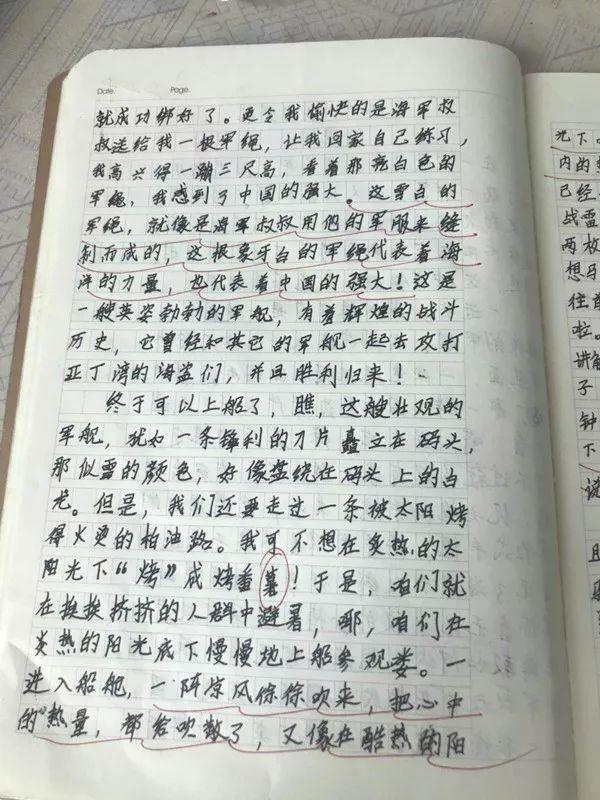 Date.  Page.
就成功绑好了。更令我愉快的是海军叔
叔送给我一根军绳，让我回家自己练习，
我高兴得一蹦三尺高，看着那亮白色的
军绳，我感到了中国的强大。这雪白的
军绳，就像是海军叔叔用他的军服来缝
制而成的，这根象牙白的军绳代表着海
洋的力量，也代表着中国的强大！这是
一艘英姿勃勃的军舰，有着辉煌的战斗
历史，它曾经和其它的军舰一起去攻打
亚丁湾的海盗们，并且胜利归来！
终于可以上船了，瞧，这艘壮观的
军舰，犹如一条锋利的刀片矗立在码头，
那似雪的颜色，好像盘绕在码头上的白
龙。但是，我们还要走过一条被太阳烤
得火烫的柏油路。我可不想在炙热的太
阳光下“烤”成烤番薯！于是，咱们就
在挨挨挤挤的人群中避暑，耶，咱们在
炎热的阳光底下慢慢地上船参观娄。一
进入船舱，一阵凉风徐徐吹来，把心中
的热量，都给吹散了，又像在酷热的阳
光下
内的
已经
战雷
两枚
想马
往前
啦。
讲解
子
钟
下